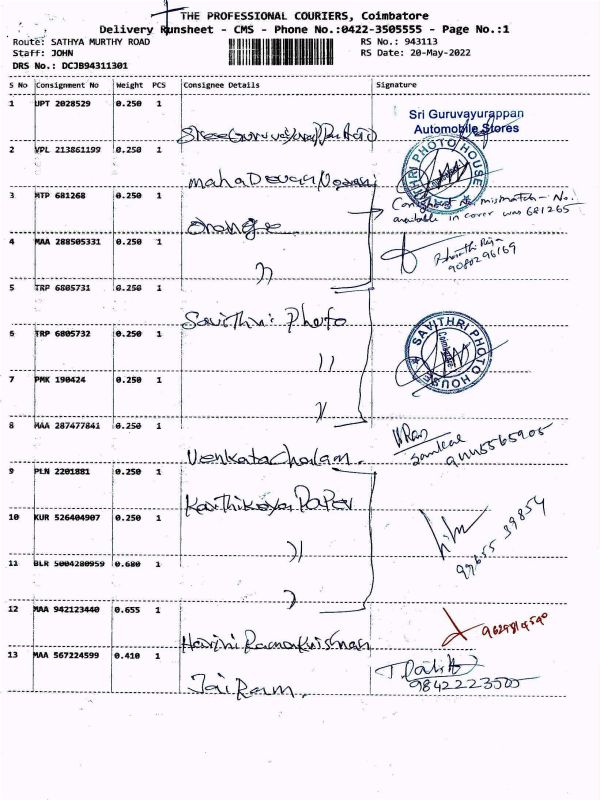 THE PROFESSIONAL COURIERS, Coimbatore
Delivery Runsheet - CMS - Phone No.:0422-3505555 - Page No.:1
Route: SATHYA MURTHY ROAD RS No.: 943113
Staff: JOHN RS Date: 20-May-2022
DRS No.: DCJB94311301
S No Consignment No Weight PCS Consignee Details Signature
1 UPT 2028529 0.250 1
Sri Guruvayurappan
Automobile Stores
2 VPL 213861199 0.250 1
PHOTO HOUSE
3 MTP 681268 0.250 1 mismatch - No.
available in cover was 681265
Orange
4 MAA 288505331 0.250 1
9080296169
))
5 TRP 6805731 0.250 1
Savithri Photo
6 TRP 6805732 0.250 1
SAVITHRI PHOTO HOUSE
Coimbatore
))
7 PMK 190424 0.250 1
))
8 MAA 287477841 0.250 1
Venkatachalam.
9 PLN 2201881 0.250 1
Karthikeya Paper
10 KUR 526404907 0.250 1
97655 39854
))
11 BLR 5004280959 0.680 1
12 MAA 942123440 0.655 1
Harini Ramakrishnan
13 MAA 567224599 0.410 1
9842223505
Jai Ram.